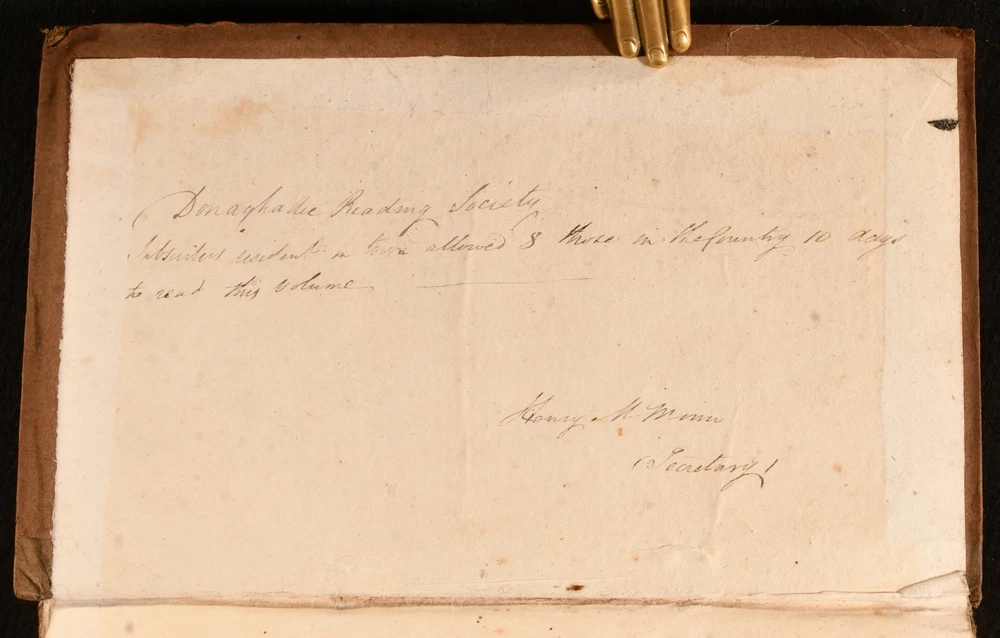 Donaghadee Reading Society
Subscribers resident in town allowed 8 those in the Country 10 days
to read this volume
Henry
(Secretary)